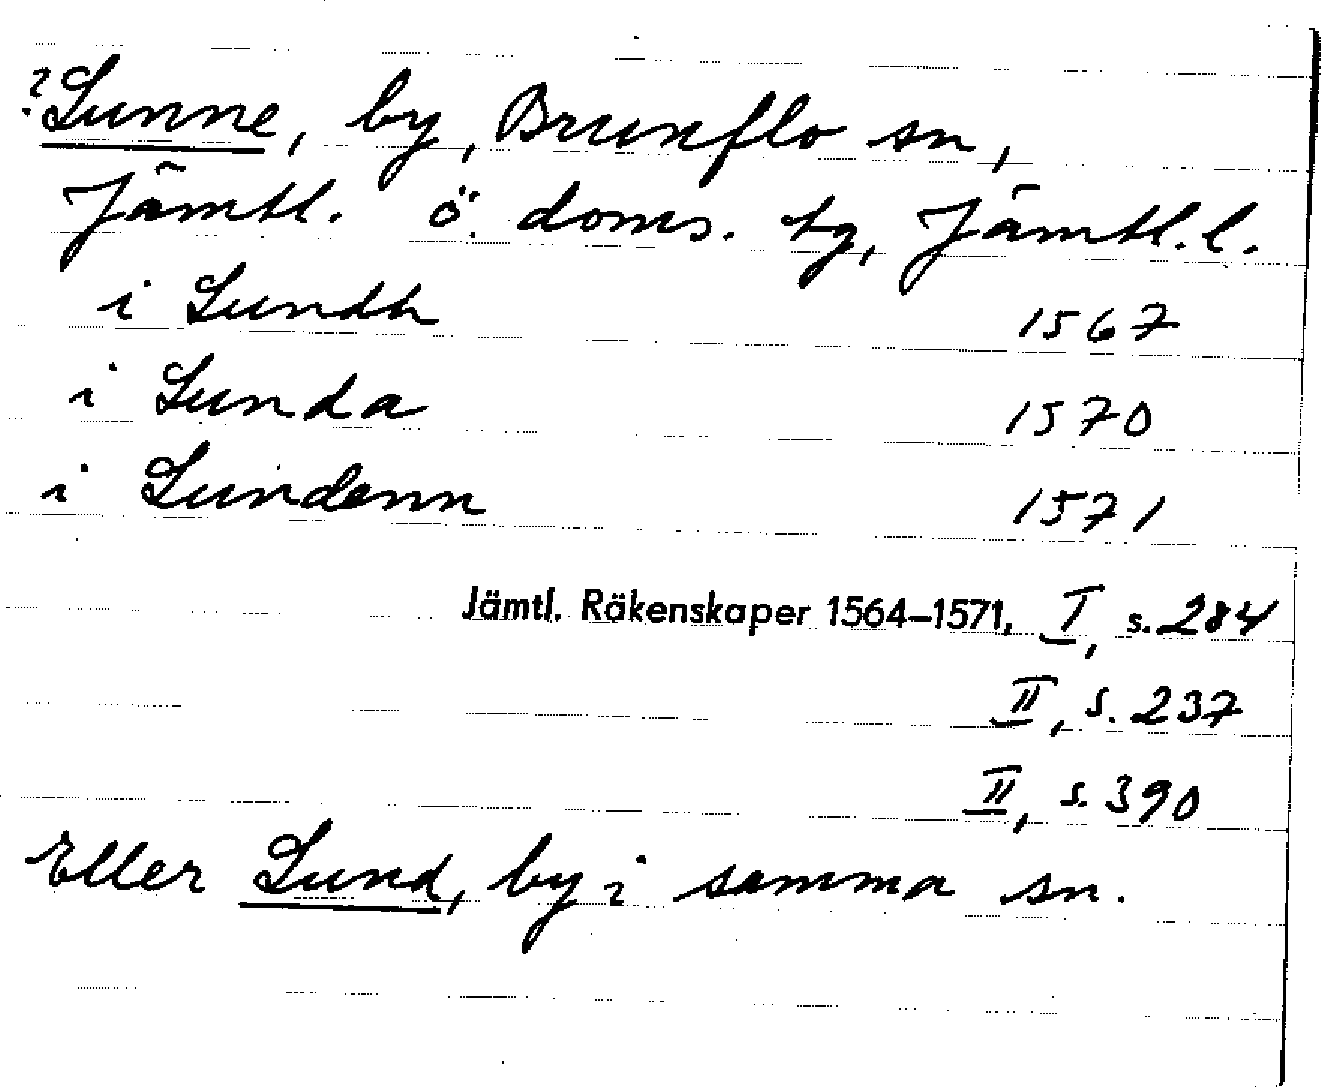 ?Sunne, by, Brunflo sn,
Jämtl. ö. doms. tg, Jämtl. l.
i Sundh 1567
i Sunda 1570
i Sundenn 1571
Jämtl. Räkenskaper 1564–1571, I, s. 284
II, s. 237
II, s. 390
Eller Sund, by i samma sn.